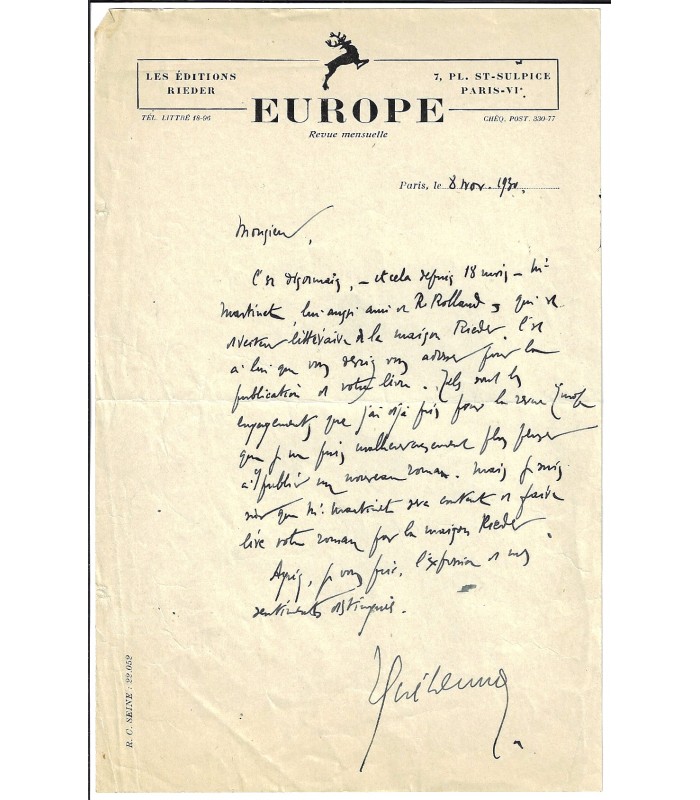 LES ÉDITIONS
RIEDER
7, PL. ST-SULPICE
PARIS-VIᵉ
EUROPE
TÉL. LITTRÉ 18-96
CHÈQ. POST. 330-77
Revue mensuelle
Paris, le 8 Nov. 1930.
Monsieur,
C'est désormais, – et cela depuis 18 mois – M.
Martinet, lui aussi ami de R. Rolland, qui est
directeur littéraire de la maison Rieder. C'est
à lui que vous devriez vous adresser pour la
publication de votre livre. Tels sont les
engagements que j'ai déjà pris pour la revue Europe
que je ne puis malheureusement plus penser
à y publier un nouveau roman. Mais je suis
sûr que M. Martinet sera content de faire
lire votre roman pour la maison Rieder.
Agréez, je vous prie, l'expression de mes
sentiments distingués.
Guéhenno
R. C. SEINE : 22.052